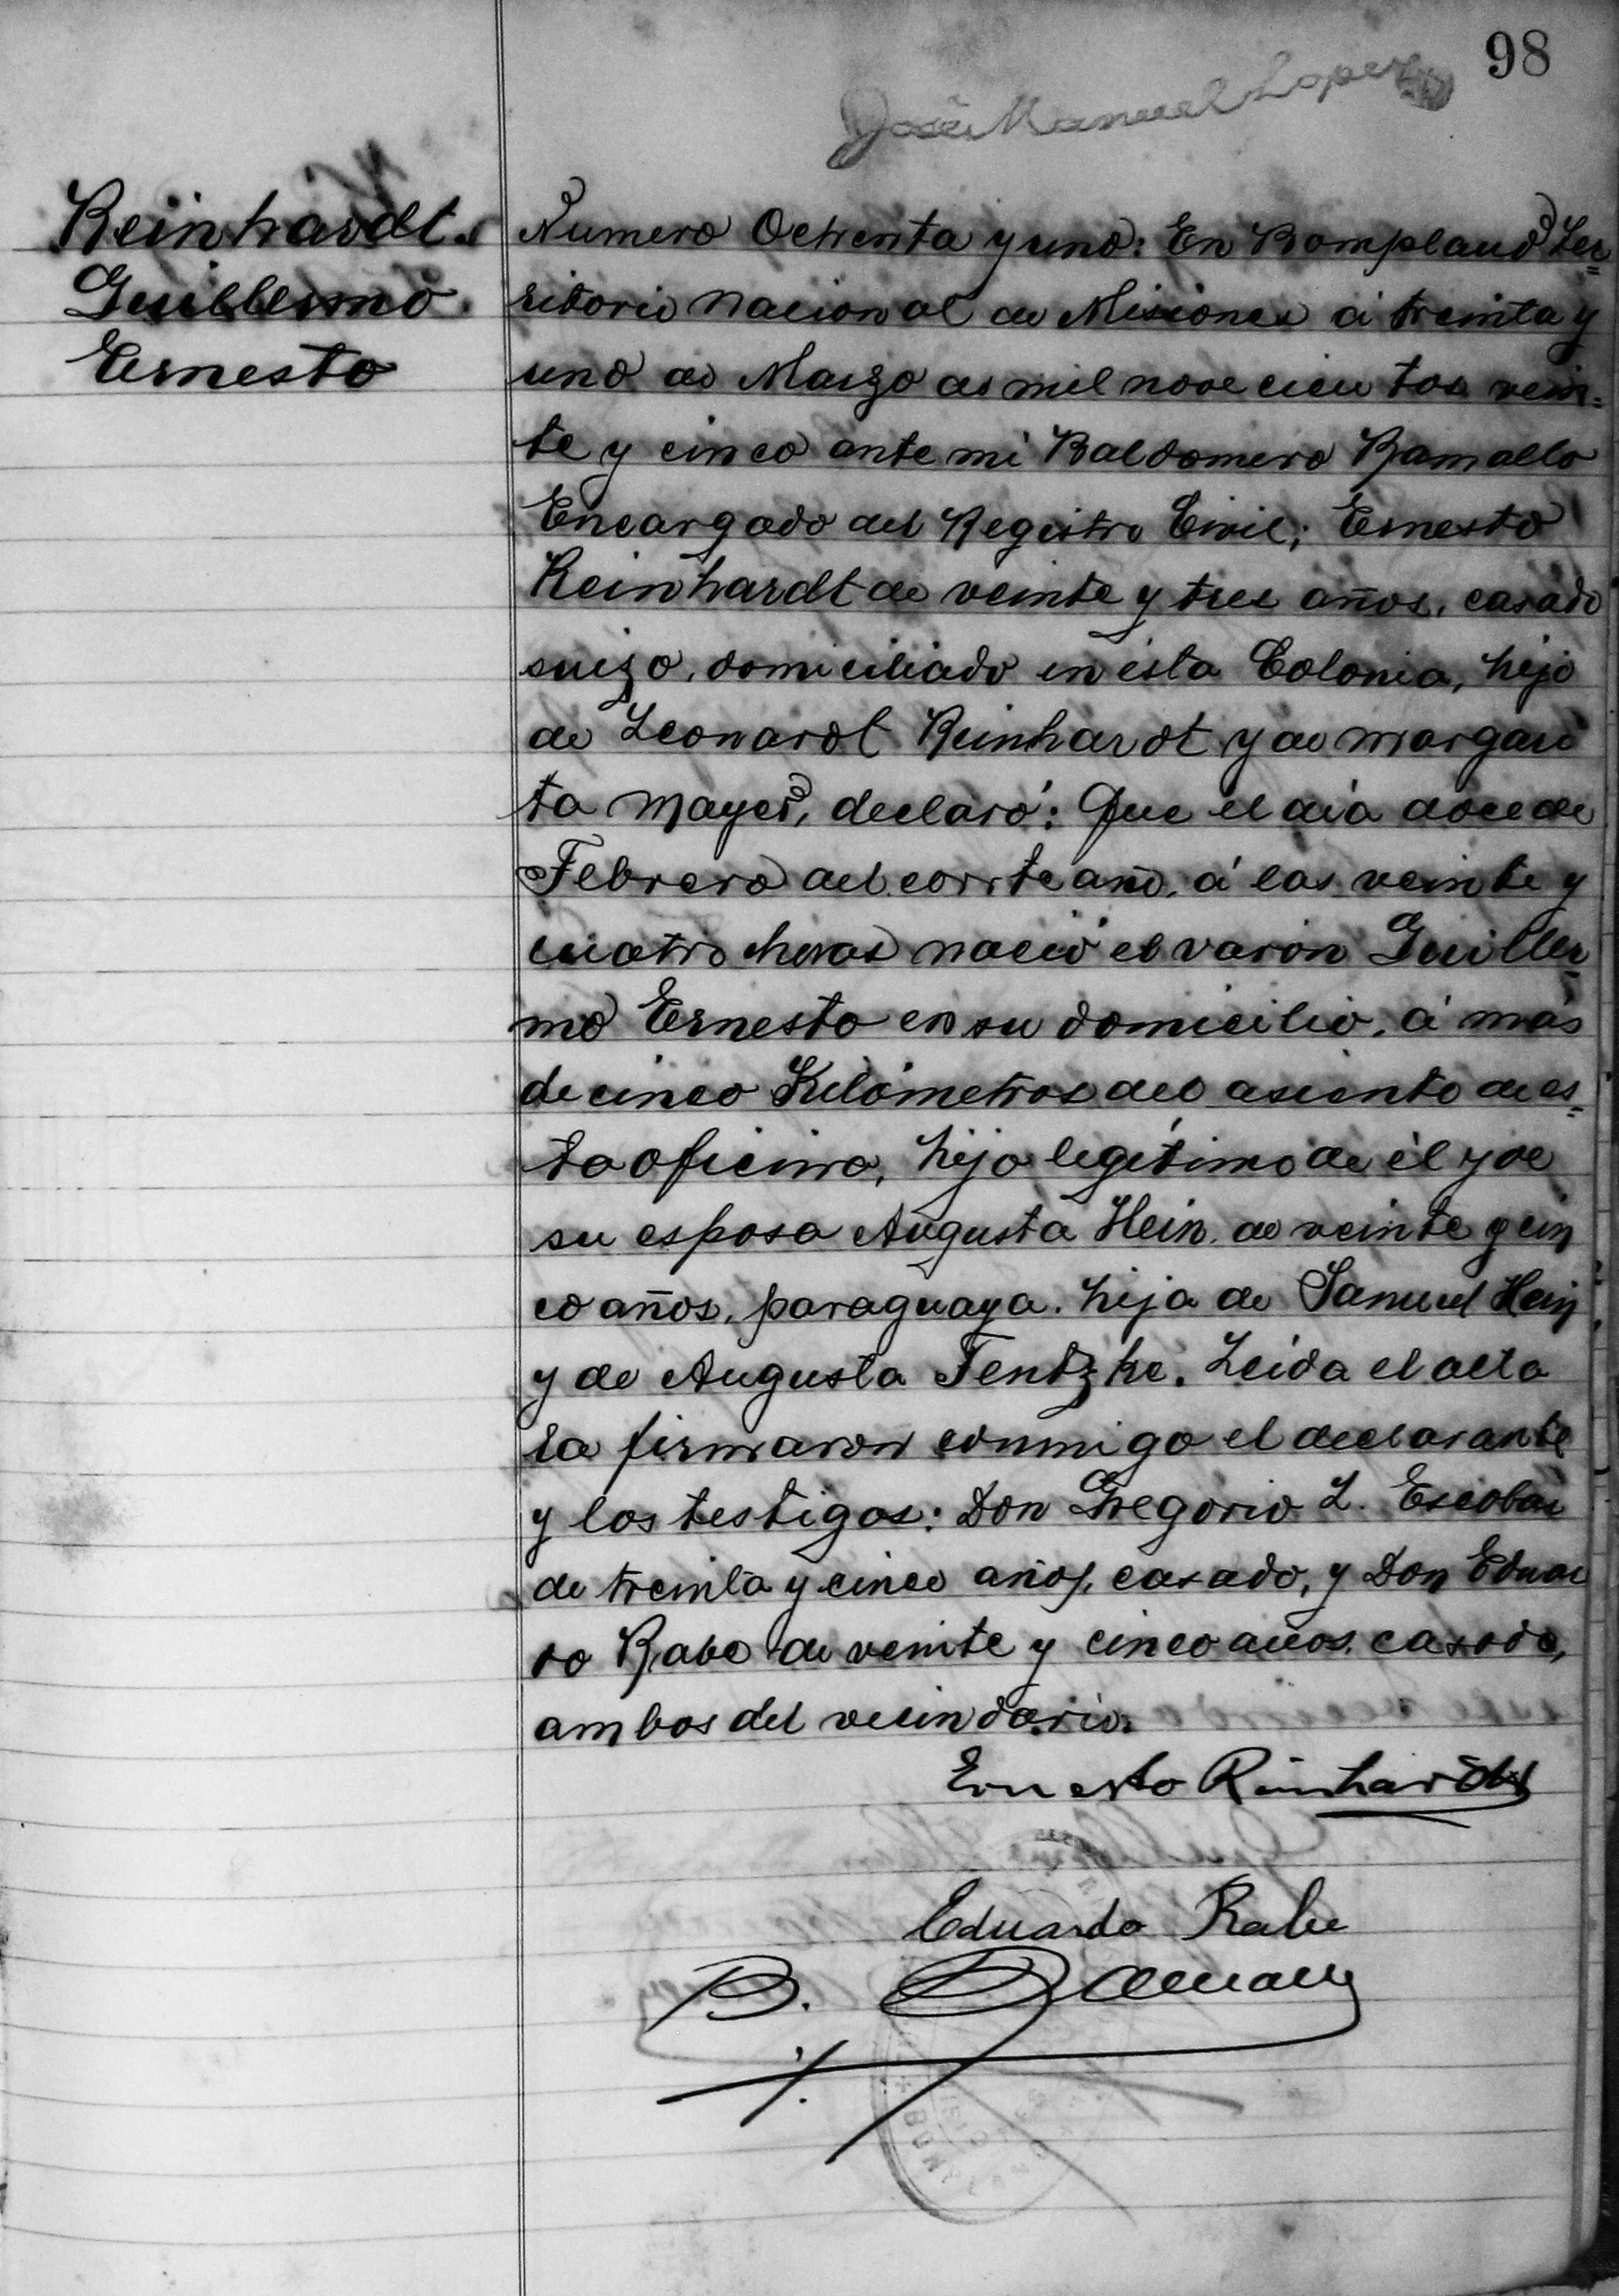 98
José Manuel Lopez
Reinhardt.
Guillermo
Ernesto
Numero Ochenta y uno: En Bompland Ter=
ritorio Nacional de Misiones á treinta y
uno de Marzo de mil nove cien tos vein=
te y cinco ante mi Baldomero Ramallo
Encargado del Registro Civil; Ernesto
Reinhardt de veinte y tres años, casado
suizo, domiciliado en ésta Colonia, hijo
de Leonardt Reinhardt y de Margari
ta Mayer, declaró: Que el día doce de
Febrero del corrte año, á las veinte y
cuatro horas nació el varón Guiller=
mo Ernesto en su domicilio, á más
de cinco Kilómetros del asiento de es=
ta oficina, hijo legítimo de él y de
su esposa Augusta Hein, de veinte y cin
co años, paraguaya. hija de Samuel Hein
y de Augusta Tentzke. Leida el acta
la firmaron conmigo el declarante
y los testigos: Don Gregorio L. Escobar
de treinta y cinco años, casado, y Don Eduar
do Rabe de veinte y cinco años casado,
ambos del vecindario.
Ernesto Reinhardt
Eduardo Rabe
B. Ramallo